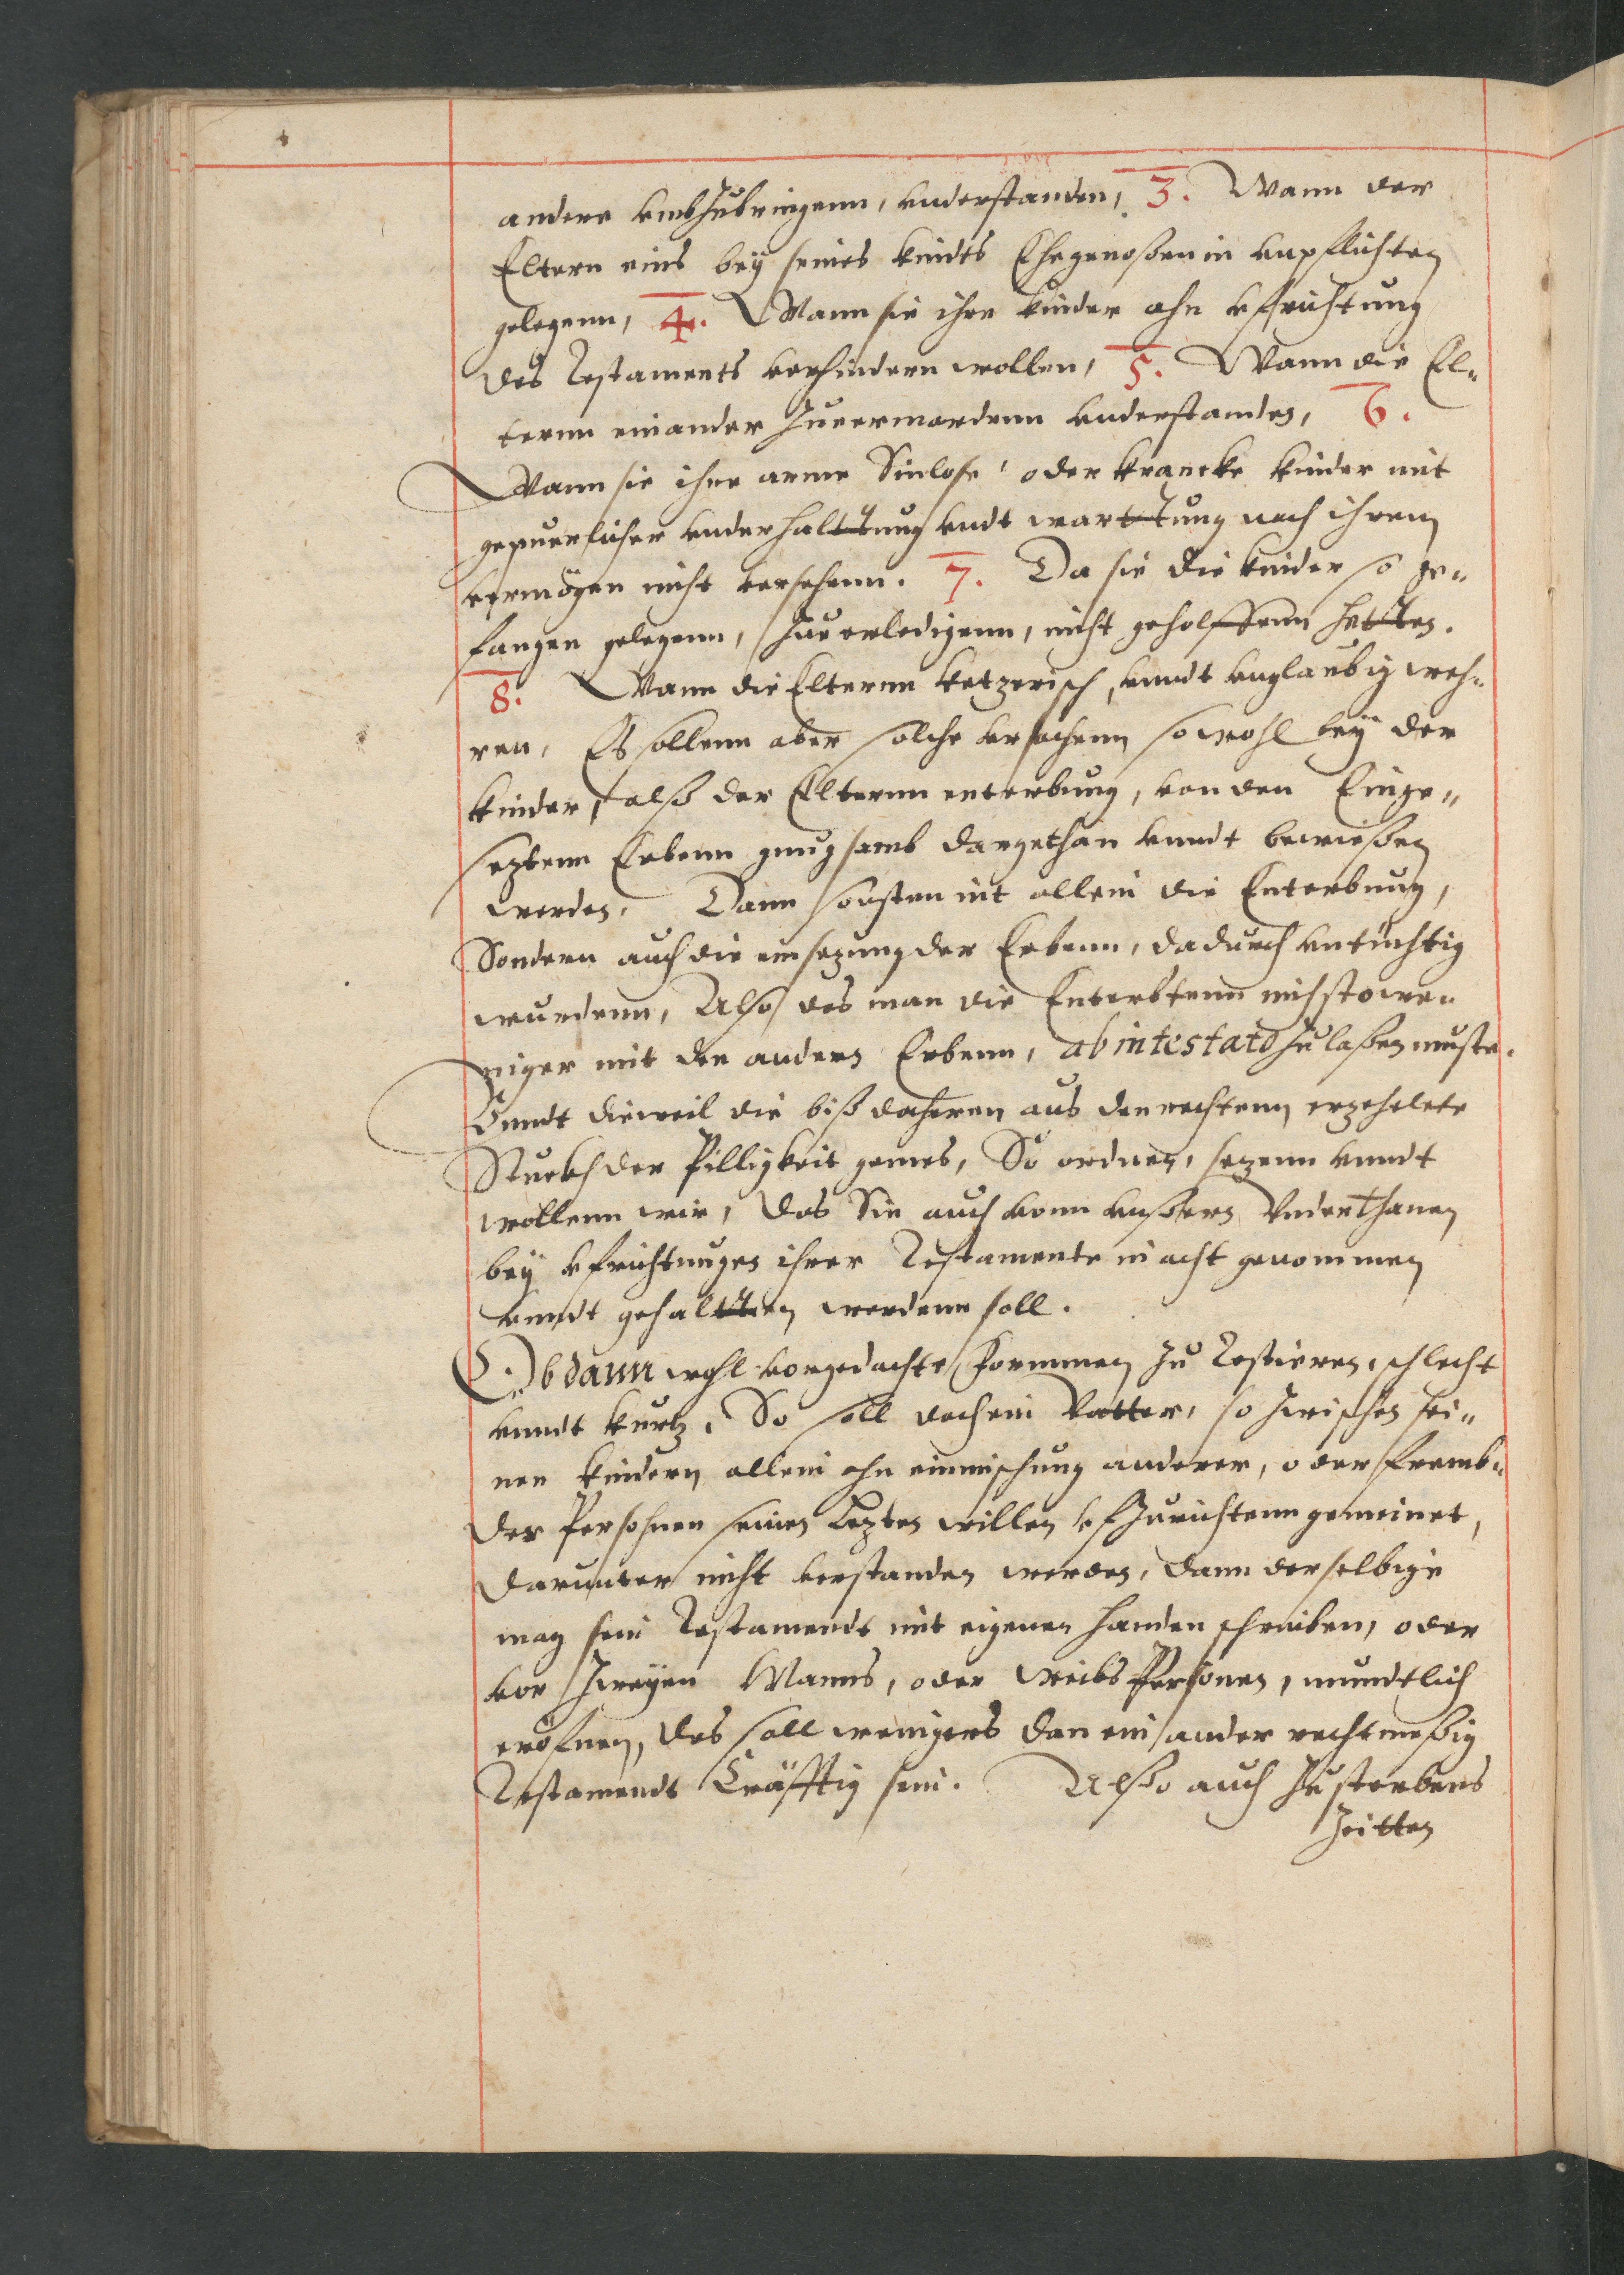 andere vmbzubringenn, vnderstanden, 3. Wann der
Eltern eins bey seines kindts Ehegenoßen in vnpflichten
gelegenn, 4. Wann sie ihre kinder ahn vffrichtung
des Testaments verhindern wollen, 5. Wann die El„
ternn einander zuermordenn vnderstanden, 6.
Wann sie ihre arme Sinlose, oder krancke kinder mit
gepuerlicher vnderhalttung vndt warttung nach ihrem
vermögen nicht versehenn. 7. Da sie die kinder so ge„
fangen gelegenn, zue erledigenn, nicht geholffenn hetten.
8. Wann die Elternn ketzerisch, vnndt vnglaubig weh„
ren, Es sollenn aber solche vrsachenn sowohl bey der
kinder, alß der Elternn enterbung, von den Einge„
seztenn Erbenn gnugsamb dargethan vnndt bewießen
werden. Dann sonsten nit allein die Enterbung,
Sondern auch die einsezung der Erbenn, dadurch vntüchtig
wurdenn, Also das man die Enterbtenn nichstowe„
niger mit den andern Erbenn, ab intestato zulaßen muste.
Vnndt dieweil die biß daherin aus den rechtenn erzehelete
Stuckh der Pilligkeit gemes, So ordnen, sezenn vnndt
wollenn wir, das Sie auch vonn vnßern Vnderthanen
bey vffrichtungen ihrer Testamente in acht genommen
vnndt gehaltten werdenn soll.
Ob dann wohl vorgedachte formmen zu Testieren, schlecht
vnndt kurtz, So soll doch ein Vatter, so zwischen sei„
nen kindern allein ohn einmischung anderer, oder fremb„
der Persohnen seinen Lezten willen vfzurichtenn gemeinet,
darunter nicht verstanden werden, dann derselbige
mag sein Testamendt mit eigenen handen schreiben, oder
vor zweyen Manns, oder Weibs Personen, mundtlich
eröfnen, das soll wenigers dan ein ander rechtmeßig
Testamendt Cräfftig sein. Alßo auch zu sterbens
Zeitten